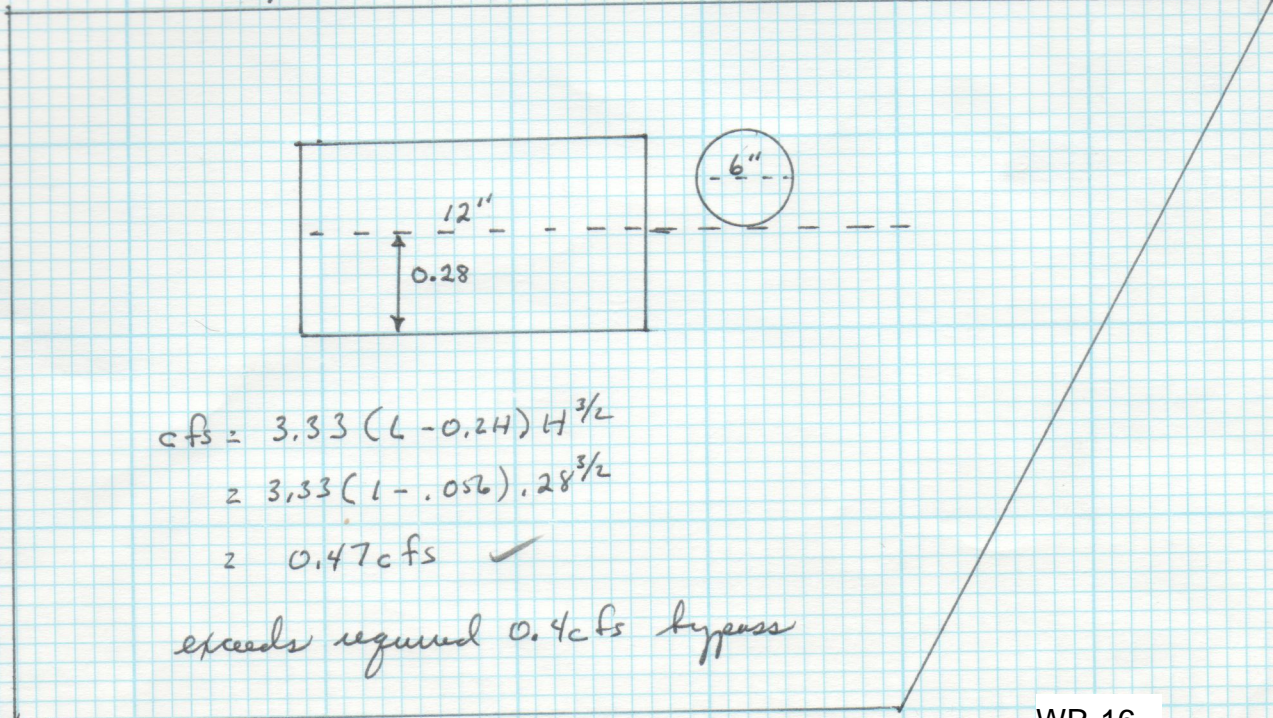 6"
12"
0.28
cfs = 3.33 (L - 0.2H) H^3/2
= 3.33 (1 - .056) .28^3/2
= 0.47 cfs ✓
exceeds required 0.4cfs bypass